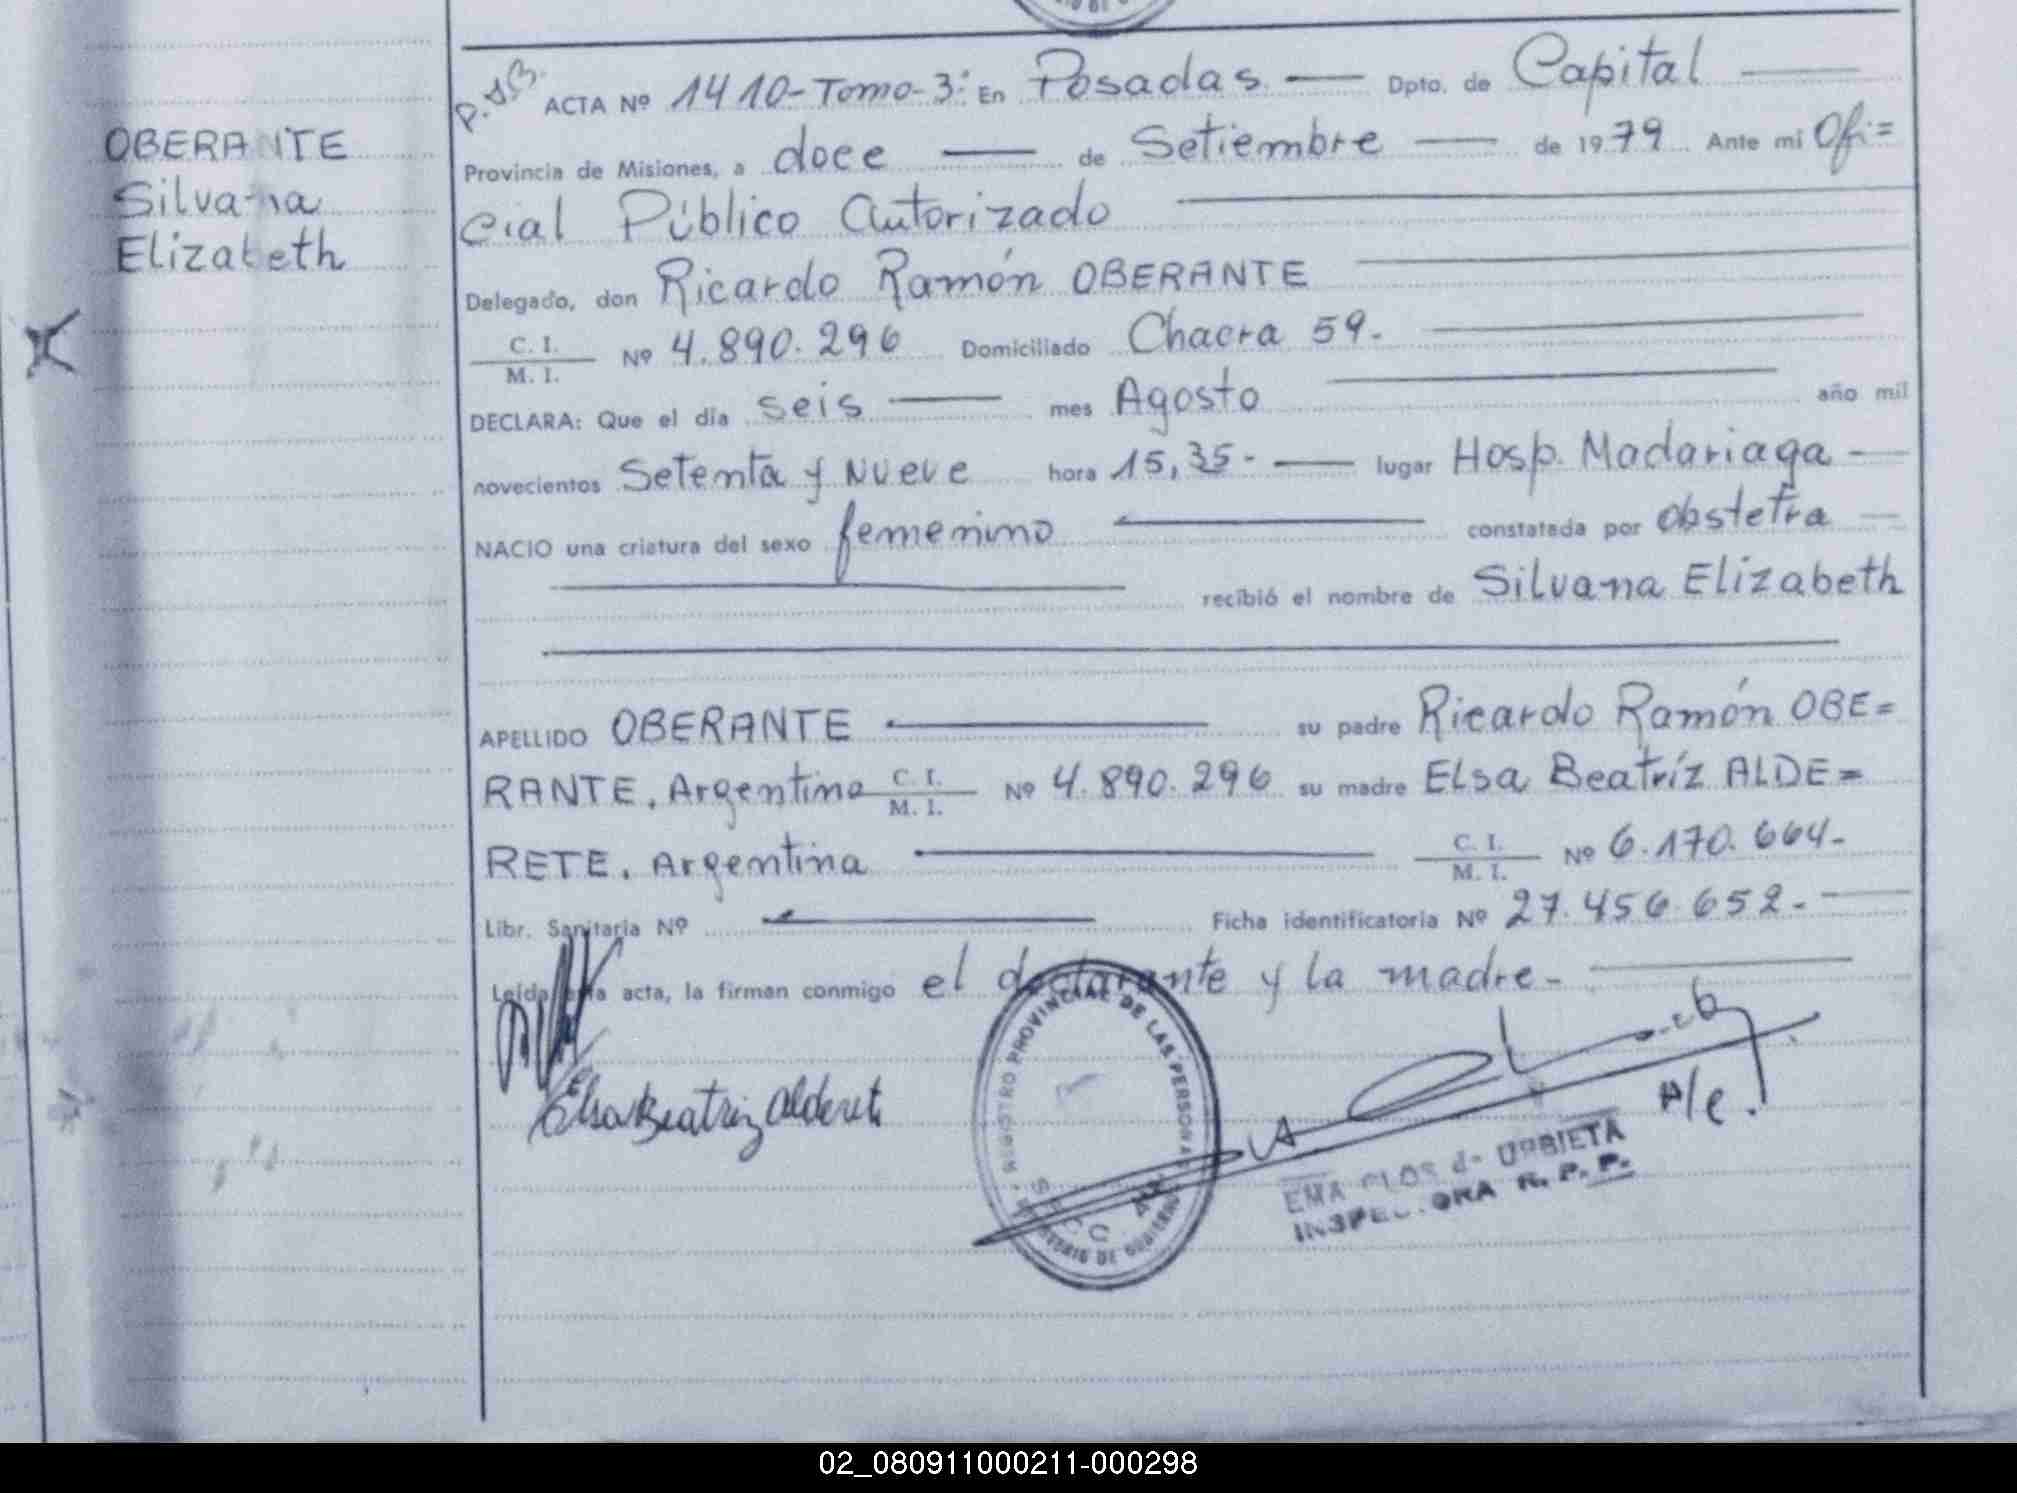 OBERANTE
Silvana
Elizabeth
ACTA Nº 1410-Tomo-3: En Posadas Dpto. de Capital
Provincia de Misiones, a doce de Setiembre de 1979 Ante mi Ofi=
cial Público Autorizado
Delegado, don Ricardo Ramón OBERANTE
C. I.
M. I. Nº 4.890.296 Domiciliado Chacra 59.-
DECLARA: Que el día seis mes Agosto año mil
novecientos Setenta y Nueve hora 15,35- lugar Hosp. Madariaga
NACIO una criatura del sexo femenino constatada por obstetra
recibió el nombre de Silvana Elizabeth
APELLIDO OBERANTE su padre Ricardo Ramón OBE=
RANTE, Argentino C. I. M. I. Nº 4.890.296 su madre Elsa Beatríz ALDE=
RETE, Argentina C. I. M. I. Nº 6.170.664-
Libr. Sanitaria Nº Ficha identificatoria Nº 27.456.652.-
Leída esta acta, la firman conmigo el declarante y la madre-
Elsa Beatriz Alderete
REGISTRO PROVINCIAL DE LAS PERSONAS
SECC.
MINISTERIO DE GOBIERNO
URBIETA
INSPECTORA R. P. P.
02_080911000211-000298